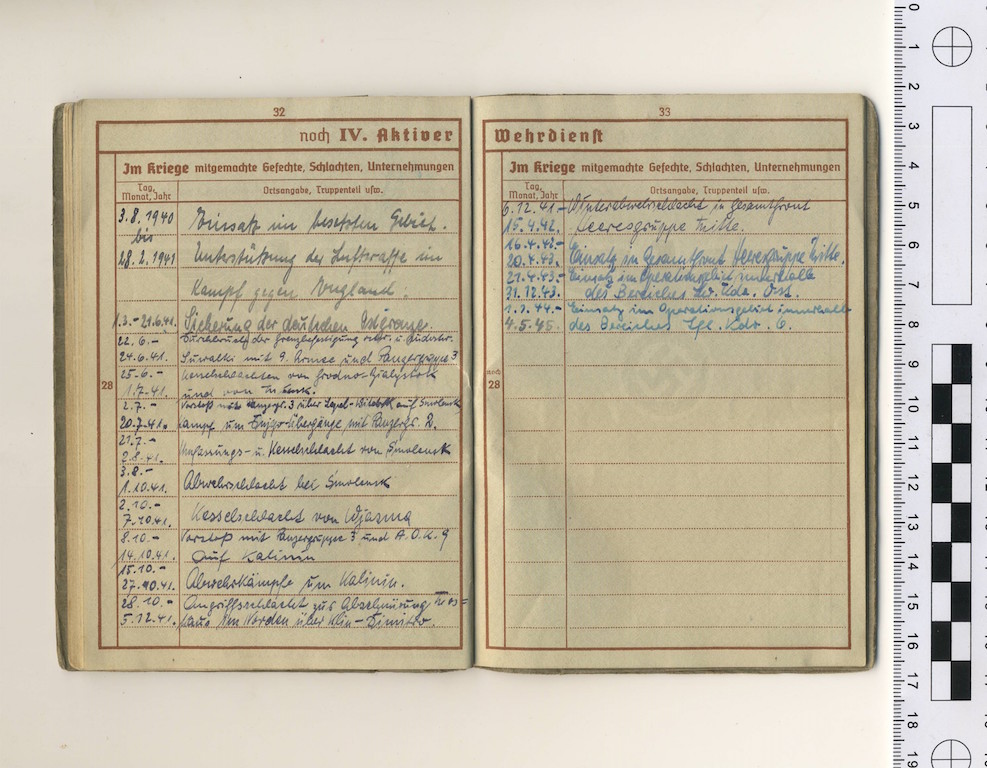 32
noch IV. Aktiver
Im Kriege mitgemachte Gefechte, Schlachten, Unternehmungen
Tag, Monat, Jahr
Ortsangabe, Truppenteil usw.
3.8.1940 Einsatz im besetzten Gebiet.
bis
28.2.1941 Unterstützung der Luftwaffe im
Kampf gegen England.
1.3.-21.6.41. Sicherung der deutschen Ostgrenze.
22.6.- Durchbruch der Grenzbefestigung u.
24.6.41. Suwalki mit 9. Armee und Panzergruppe 3
25.6.- Kesselschlachten von Grodno-Bialystok
28
1.7.41. und von Minsk.
2.7.- Vorstoß mit Panzergr. 3 über Lepel-Witebsk auf Smolensk
20.7.41. Kampf um Dnjepr-Übergänge mit Panzergr. 2.
21.7.- Umfassungs- u. Kesselschlacht von Smolensk
2.8.41.
3.8.- Abwehrschlacht bei Smolensk
1.10.41.
2.10.- Kesselschlacht von Wjasma
7.10.41.
8.10.- Vorstoß mit Panzergruppe 3 und A.O.K. 9
14.10.41. auf Kalinin
15.10.- Abwehrkämpfe um Kalinin.
27.10.41.
28.10.- Angriffsschlacht zur Abschnürung Mos=
5.12.41. kaus von Norden über Klin-Dimitro.
33
Wehrdienst
Im Kriege mitgemachte Gefechte, Schlachten, Unternehmungen
Tag, Monat, Jahr
Ortsangabe, Truppenteil usw.
6.12.41.- Winterabwehrschlacht in Gesamtfront
15.4.42. Heeresgruppe Mitte.
16.4.42.- Einsatz in Gesamtfront Heeresgruppe Mitte.
20.4.43.
21.4.43.- Einsatz im Operationsgebiet innerhalb
31.12.43. des Bereiches Lw. Kdo. Ost.
1.1.44.- Einsatz im Operationsgebiet innerhalb
4.5.45. des Bereiches Lfl. Kdo. 6.
noch
28
0
1
2
3
4
5
6
7
8
9
10
11
12
13
14
15
16
17
18
19